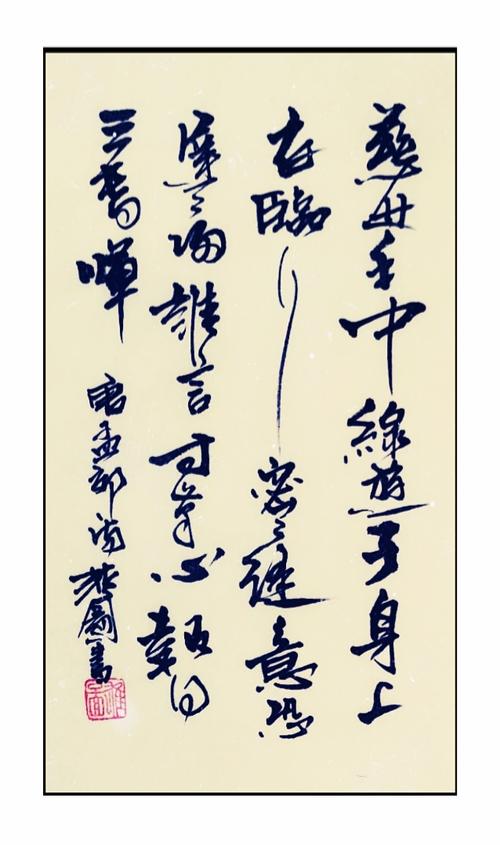 慈母手中線遊子身上
衣臨行密々縫意恐
遲々歸誰言寸草心報得
三春暉 唐孟郊詩 書